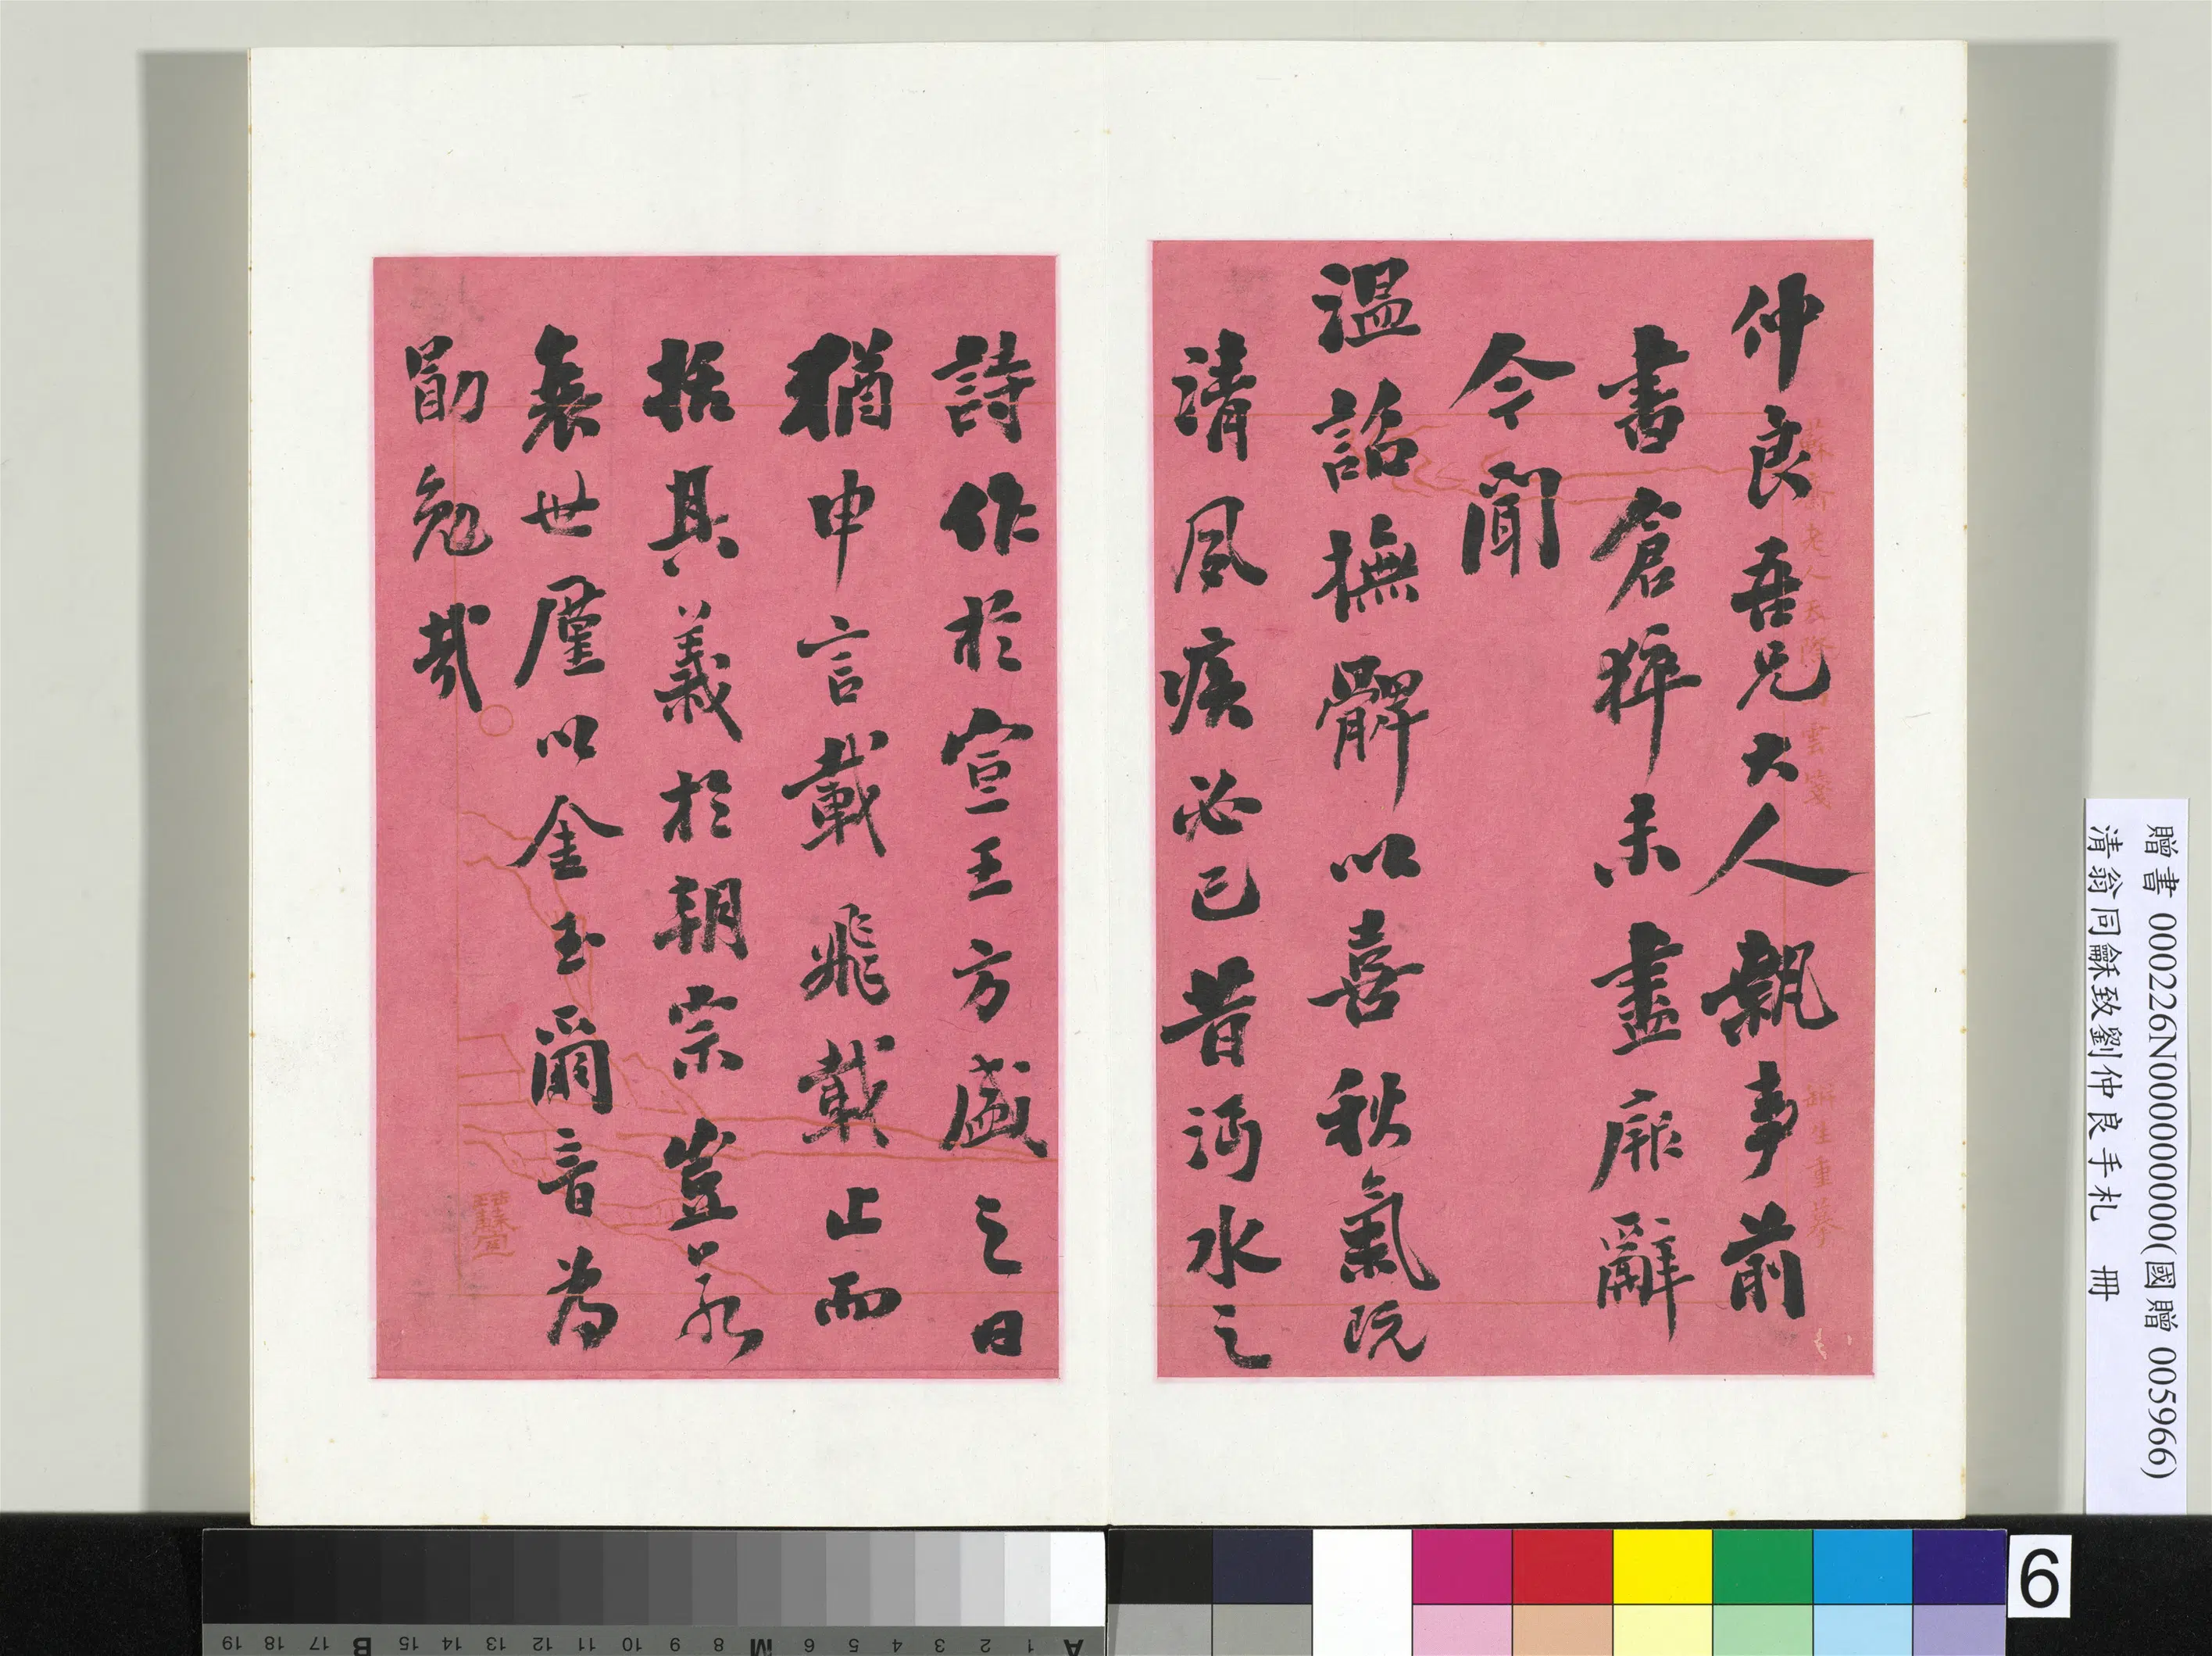 仲良吾兄大人親事前
書倉猝未盡厥辭
令聞
溫詔撫髀以喜秋氣既
清風疾必已昔沔水之
詩作於宣王方盛之日
猶申言載飛載止而
括其義於朝宗豈若
衰世廑以金玉爾音為
勖勉哉
贈書 000226N000000000(國贈 005966)
清翁同龢致劉仲良手札 冊
6
A 1 2 3 4 5 6 M 8 9 10 11 12 13 14 15 B 17 18 19